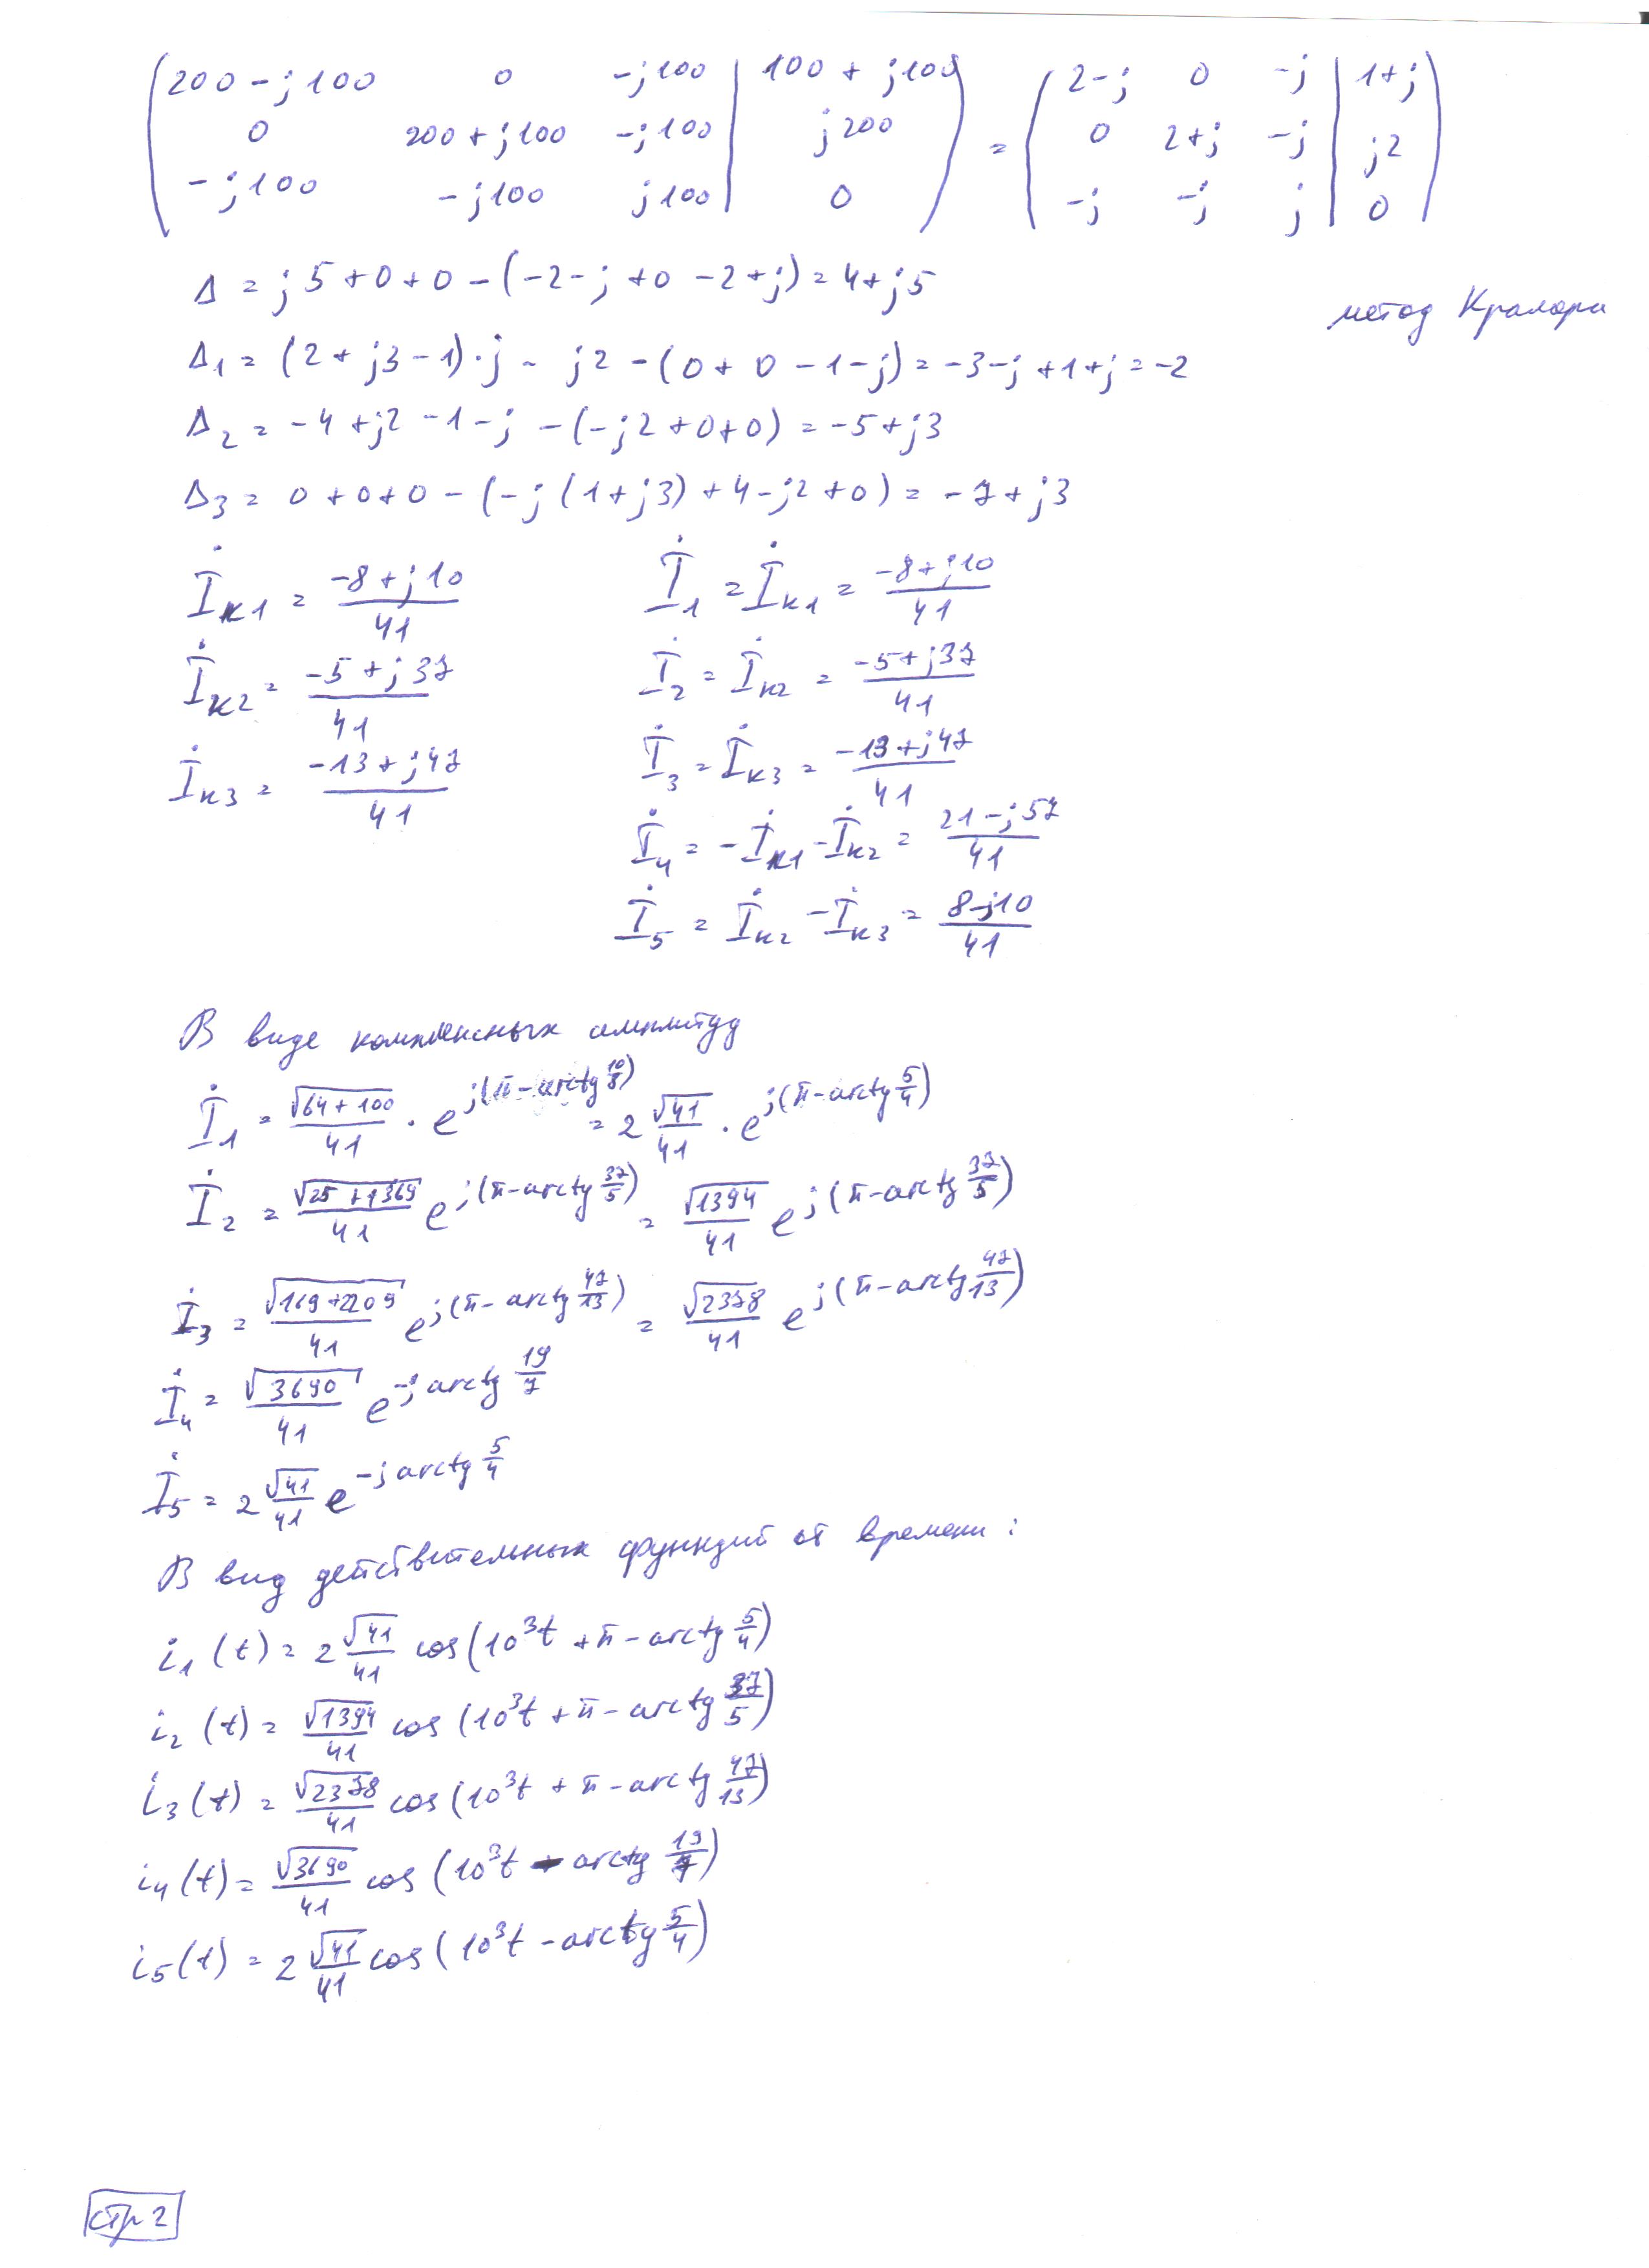 (200-j100 0 -j100 | 100+j100) = (2-j 0 -j | 1+j)
(0 200+j100 -j100 | j200) (0 2+j -j | j2)
(-j100 -j100 j100 | 0) (-j -j j | 0)
Δ = j5+0+0-(-2-j+0-2+j)=4+j5
метод Крамора
Δ1 = (2+j3-1)·j - j2 -(0+0-1-j)=-3-j+1+j=-2
Δ2 = -4+j2-1-j-(-j2+0+0)=-5+j3
Δ3 = 0+0+0-(-j(1+j3)+4-j2+0)=-7+j3
İк1 = (-8+j10)/41 İ1 = İк1 = (-8+j10)/41
İк2 = (-5+j37)/41 İ2 = İк2 = (-5+j37)/41
İк3 = (-13+j47)/41 İ3 = İк3 = (-13+j47)/41
İ4 = -İк1-İк2 = (21-j57)/41
İ5 = İк2-İк3 = (8-j10)/41
В виде комплексных амплитуд
İ1 = √(64+100)/41 · e^j(π-arctg 10/8) = 2 √41/41 · e^j(π-arctg 5/4)
İ2 = √(25+1369)/41 e^j(π-arctg 37/5) = √1394/41 e^j(π-arctg 37/5)
İ3 = √(169+2209)/41 e^j(π-arctg 47/13) = √2378/41 e^j(π-arctg 47/13)
İ4 = √3690/41 e^-j arctg 19/7
İ5 = 2 √41/41 e^-j arctg 5/4
В вид действительных функций от времени:
i1(t) = 2 √41/41 cos(10³t+π-arctg 5/4)
i2(t) = √1394/41 cos(10³t+π-arctg 37/5)
i3(t) = √2378/41 cos(10³t+π-arctg 47/13)
i4(t) = √3690/41 cos(10³t - arctg 19/7)
i5(t) = 2 √41/41 cos(10³t-arctg 5/4)
стр 2